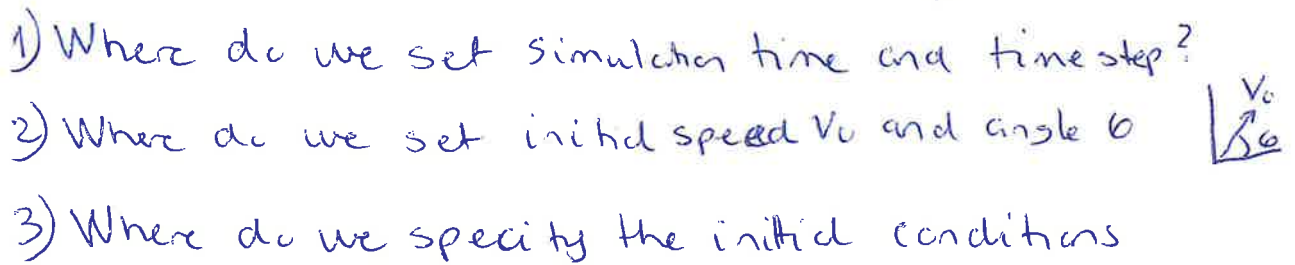 1) Where do we set simulation time and timestep?
2) Where do we set initial speed V₀ and angle θ
V₀
θ
3) Where do we specify the initial conditions